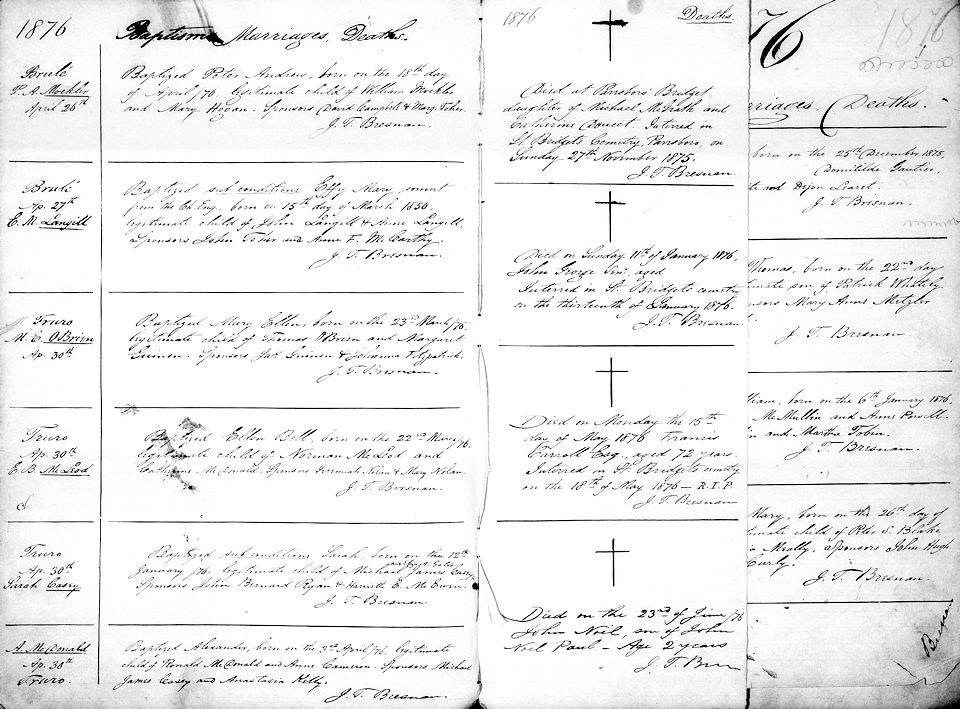 1876
Baptisms Marriages, Deaths.
Brulé
P. A. Mockler
April 26th
Baptized Peter Andrew, born on the 18th day
of April /76, legitimate child of William Mockler
and Mary Hogan. Sponsors David Campbell & Mary Toker.
J. T. Bresnan.
Brulé
Ap. 27th
E. M. Langill
Baptized sub conditione Effy Mary, convert
from the Ch. Eng. born on 15th day of March 1850.
legitimate child of John Langill & Anne Langill
Sponsors John Toker and Anne F. McCarthy.
J. T. Bresnan.
Truro
M. E. O'Brien
Ap. 30th
Baptized Mary Ellen, born on the 23rd March /76,
legitimate child of Thomas O'Brien and Margaret
Guinen. Sponsors Jas. Guinen & Johanna Fitzpatrick.
J. T. Bresnan.
Truro
Ap. 30th
E. B. McLeod
Baptized Ellen Bell, born on the 22nd March /76.
legitimate child of Norman McLeod and
Catherine McDonald. Sponsors Jeremiah Nolan & Mary Nolan.
J. T. Bresnan.
Truro
Ap. 30th
Sarah Casey
Baptized sub conditione Sarah, born on the 12th
January /76. legitimate child of Michael James Casey
Sponsors John Bernard Ryan & Harriett E. McEwen
J. T. Bresnan.
A. McDonald
Ap. 30th
Truro.
Baptized Alexander, born on the 3rd April /76. legitimate
child of Ronald McDonald and Anne Cameron. Sponsors Michael
James Casey and Anastasia Kelly.
J. T. Bresnan.
1876
Deaths.
Died at Parsboro Bridget,
daughter of Michael McGrath and
Catherine Doucet. Interred in
St. Bridgets Cemetry, Parsboro, on
Sunday 27th November 1875.
J. T. Bresnan
Died on Sunday 11th of January 1876.
John George aged
Interred in St. Bridgets cemetry
on the thirteenth of January 1876.
J. T. Bresnan
Died on Monday the 15th
day of May 1876 Francis
Carroll Esq., aged 72 years.
Interred in St. Bridgets cemetry
on the 18th of May 1876 — R.I.P.
J. T. Bresnan
Died on the 23rd of June /76
John Noil, son of John
Noil Paul - Age 2 years
J. T. Bren
76
1876
rriages, Deaths.
born on the 25th December 1875,
Domitilde Gautier.
J. T. Bresnan.
Thomas, born on the 22nd day
timate son of Patrick Whitely
nsors Mary Anne Metzler
J. T. Bresnan
liam, born on the 6th January 1876.
McMullin and Anne Powell.
in and Martha Tobin.
J. T. Bresnan.
Mary, born on the 26th day of
timate child of Peter S. Blake
Sponsors John Hugh
Curly.
J. T. Bresnan.